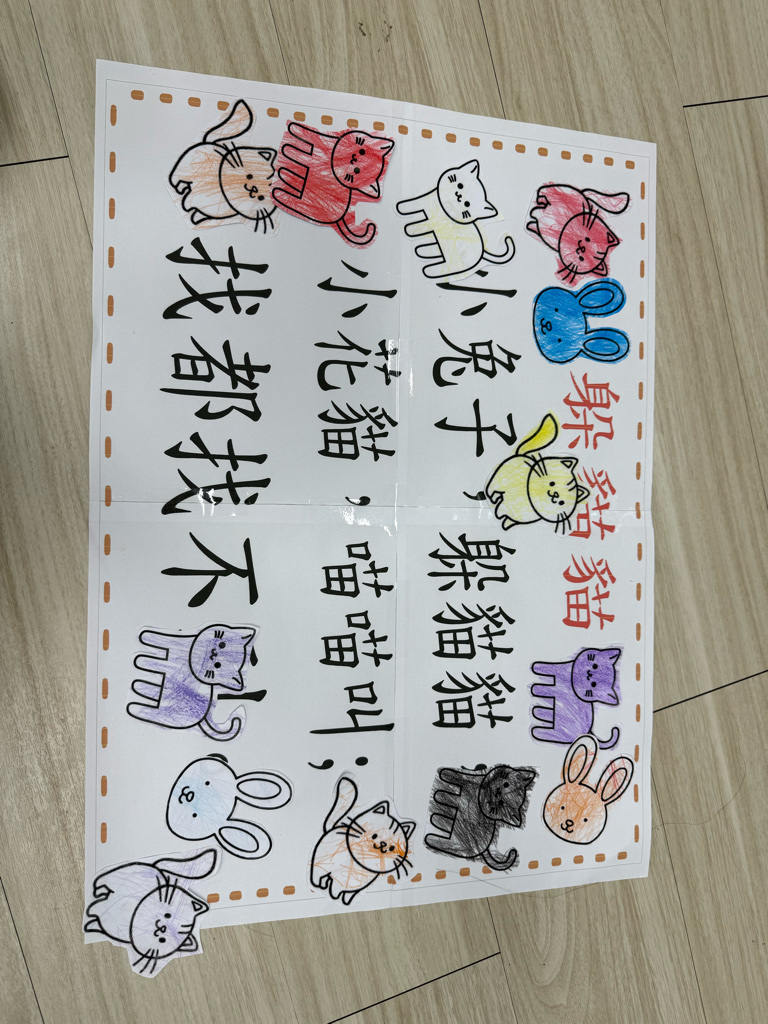 躲貓貓
小兔子，躲貓貓
小花貓，喵喵叫；
找都找不